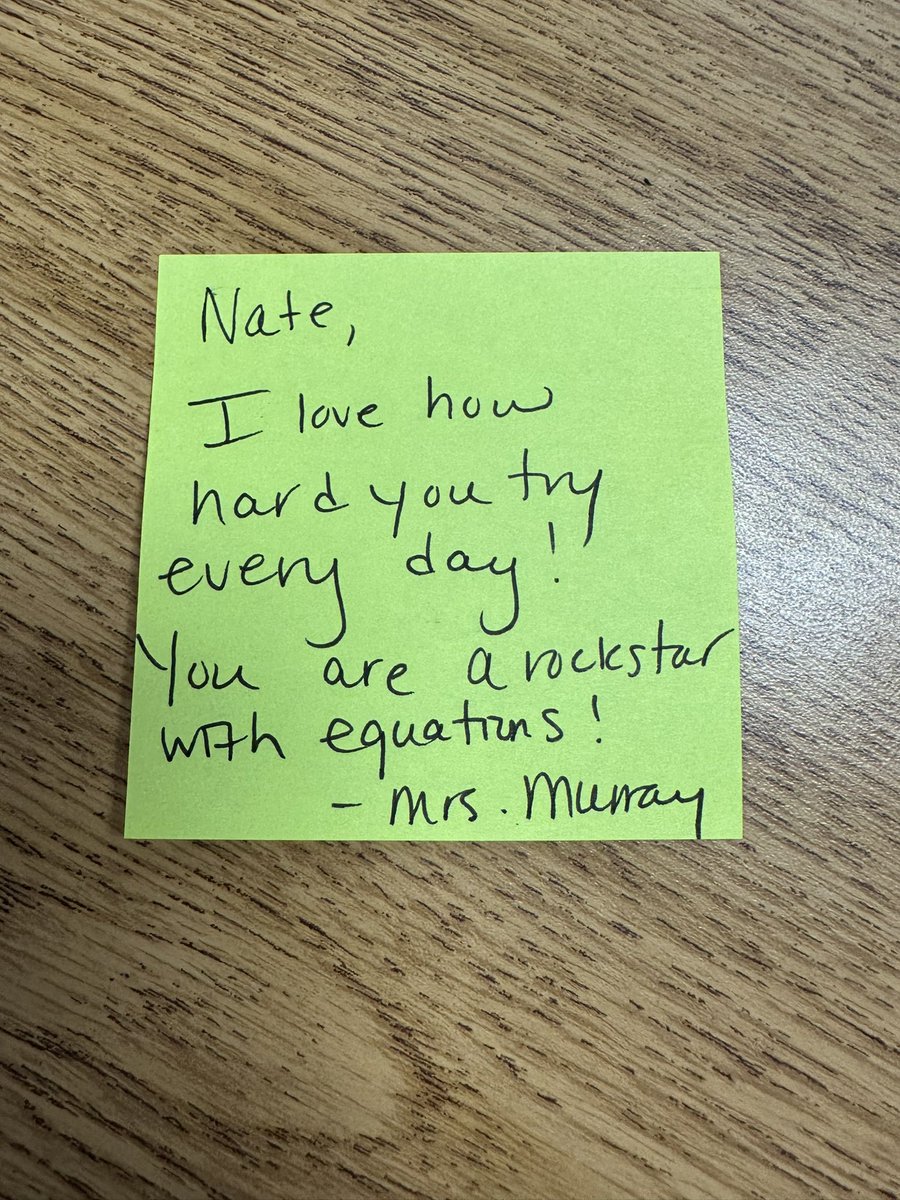 Nate,
I love how
hard you try
every day!
You are a rockstar
with equations!
- Mrs. Murray